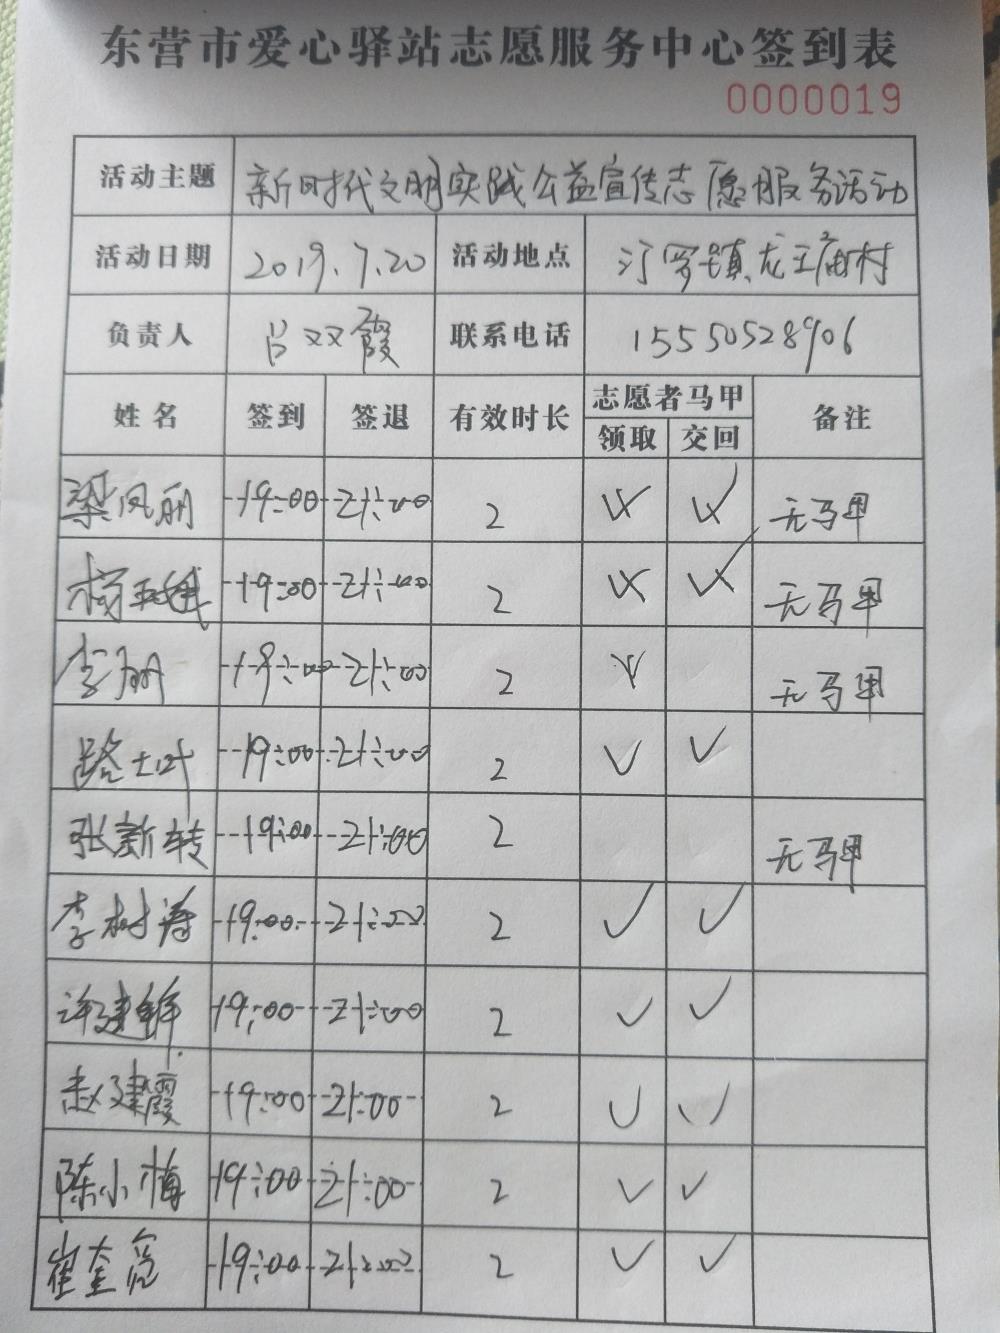 东营市爱心驿站志愿服务中心签到表
0000019
活动主题 新时代文明实践公益宣传志愿服务活动
活动日期 2019.7.20 活动地点 汀罗镇龙王庙村
负责人 吕双霞 联系电话 15550528906
姓名 签到 签退 有效时长 志愿者马甲 备注
领取 交回
梁凤丽 19:00 21:00 2 无马甲
杨 19:00 21:00 2 无马甲
李丽 19:00 21:00 2 无马甲
路士叶 19:00 21:00 2 ✓ ✓
张新转 19:00 21:00 2 无马甲
李树涛 19:00 21:00 2 ✓ ✓
许建 19:00 21:00 2 ✓ ✓
赵建霞 19:00 21:00 2 ✓ ✓
陈小梅 19:00 21:00 2 ✓ ✓
崔奎亮 19:00 21:00 2 ✓ ✓